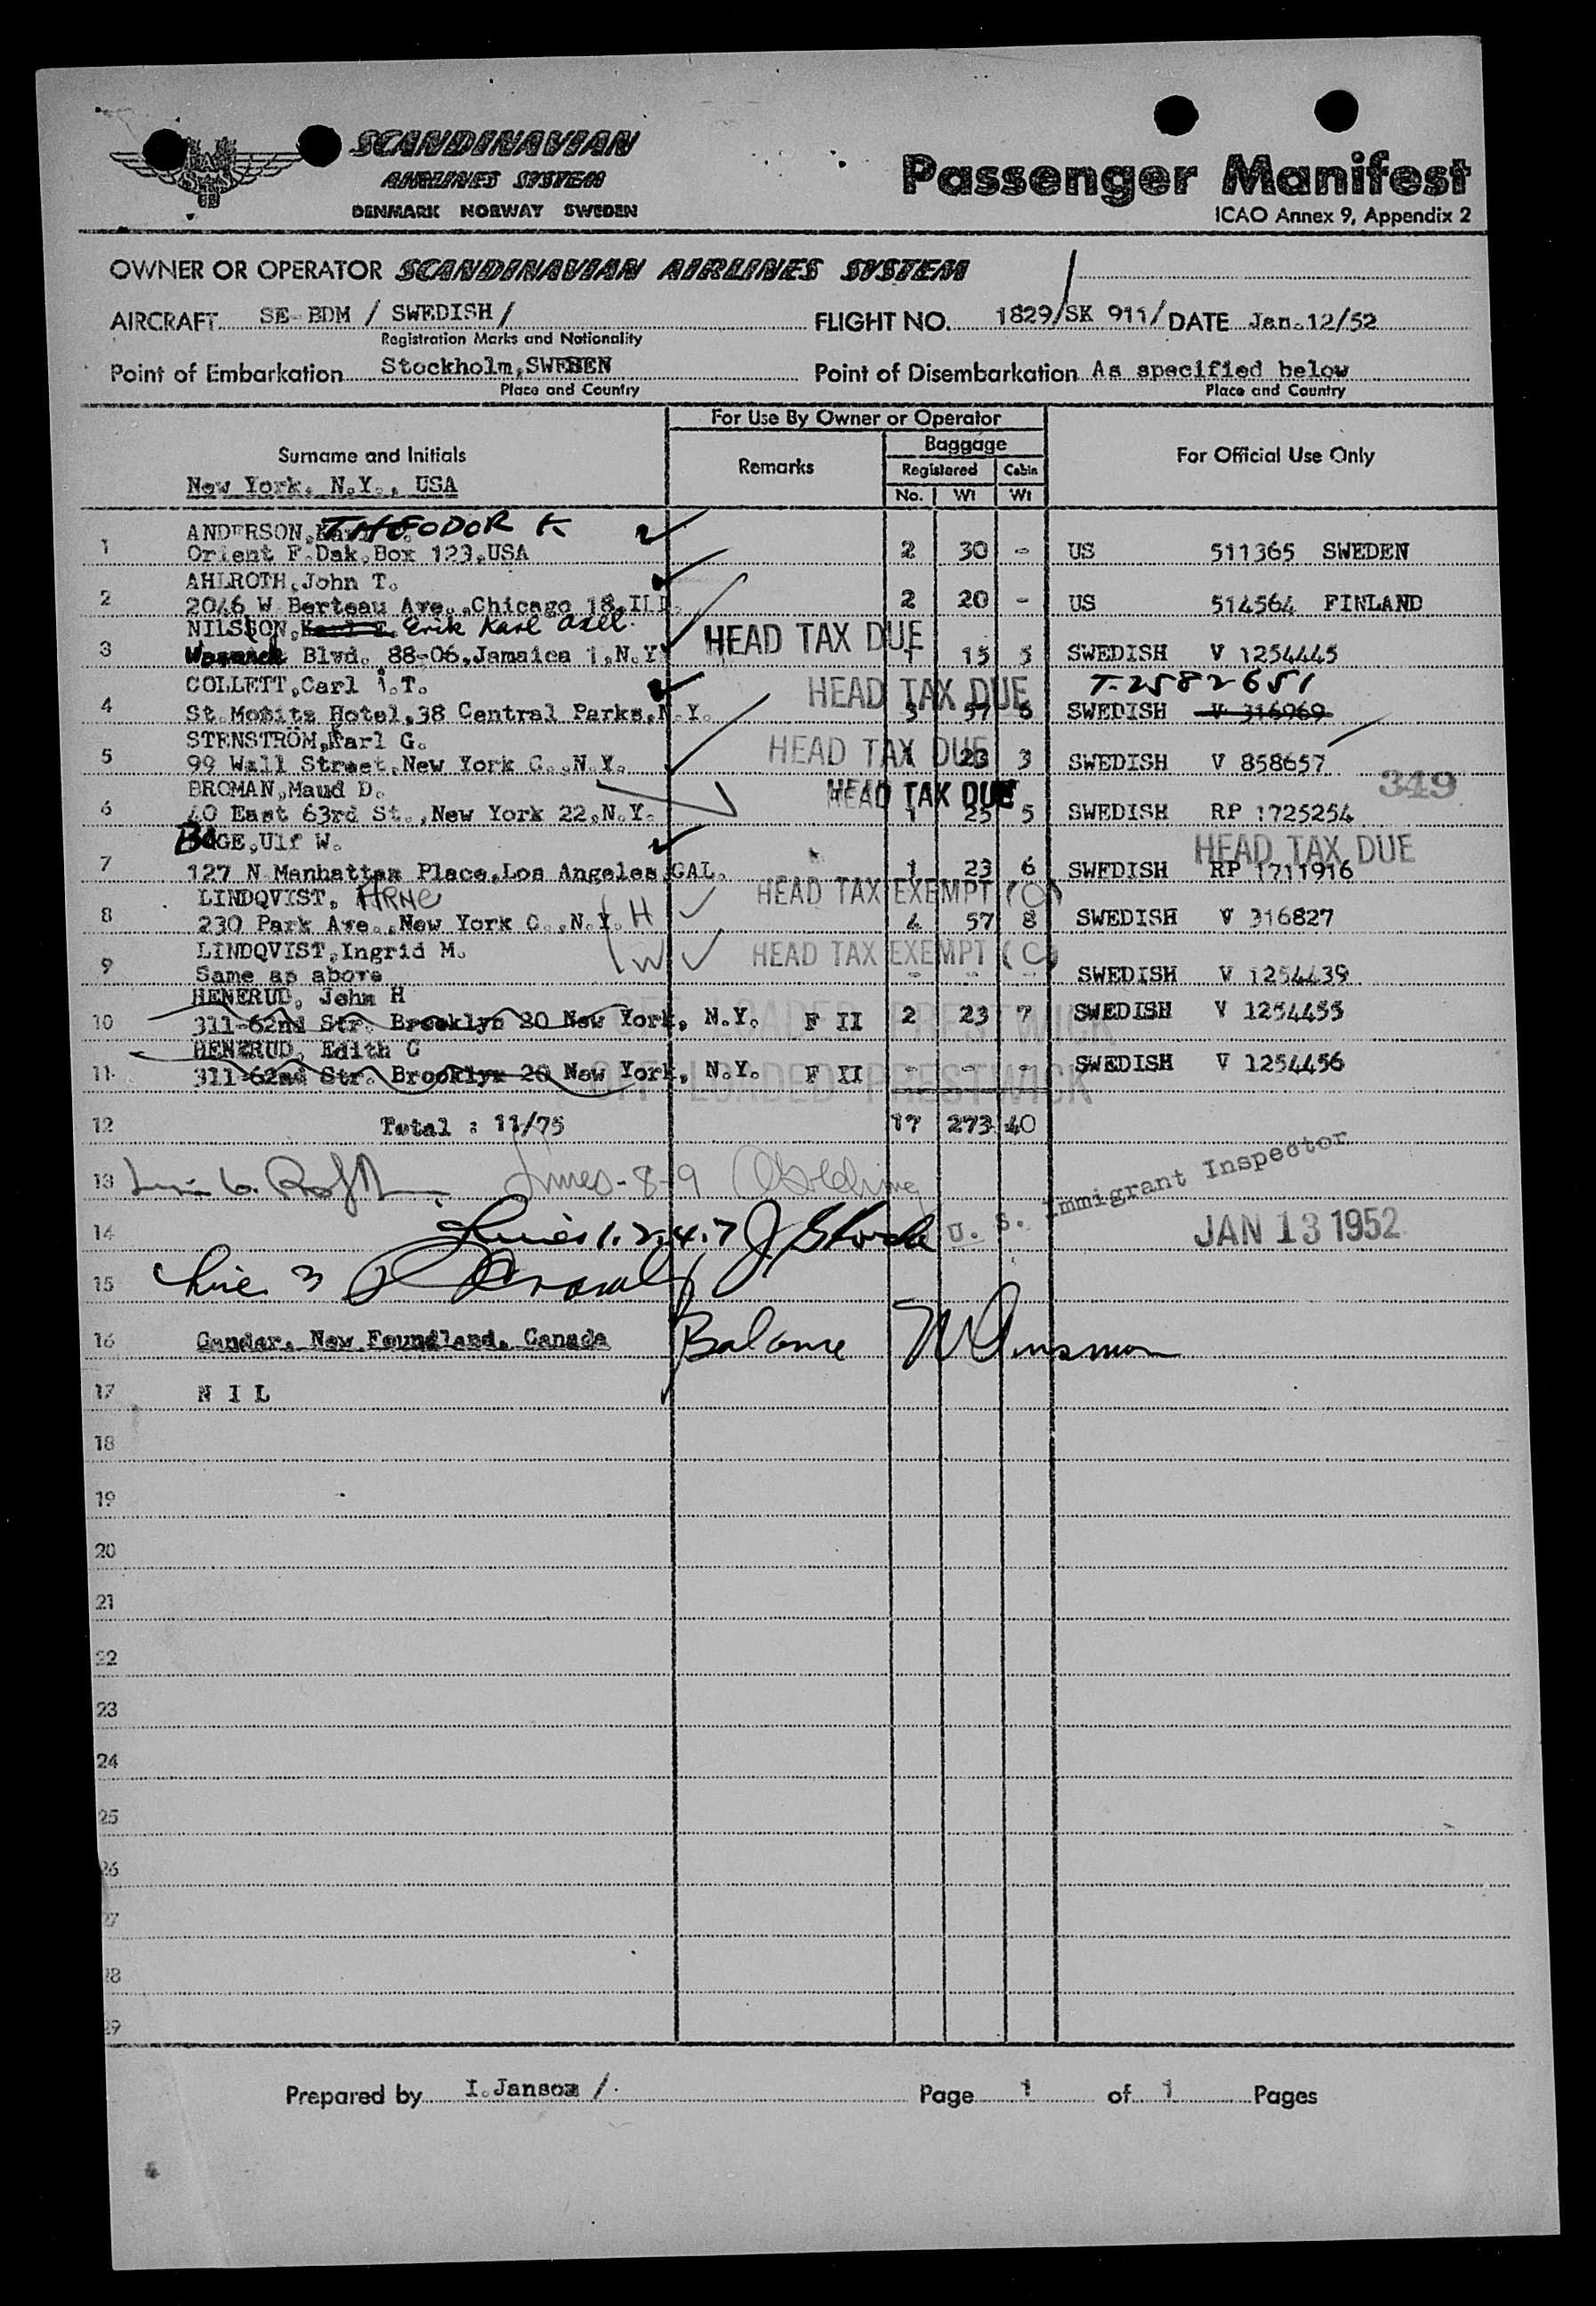 SCANDINAVIAN
AIRLINES SYSTEM
DENMARK NORWAY SWEDEN
Passenger Manifest
ICAO Annex 9, Appendix 2
OWNER OR OPERATOR SCANDINAVIAN AIRLINES SYSTEM
AIRCRAFT SE-BDM / SWEDISH / FLIGHT NO. 1829/SK 911/ DATE Jan.12/52
Registration Marks and Nationality
Point of Embarkation Stockholm, Point of Disembarkation As specified below
Place and Country Place and Country
For Use By Owner or Operator
Surname and Initials Remarks Baggage For Official Use Only
Registered Cabin
New York, N.Y., USA No. Wt Wt
ANDERSON, THEODOR K
1 Orient F.Dak,Box 123,USA 2 30 - US 511365 SWEDEN
AHLROTH,John T.
2 2046 W Berteau Ave.,Chicago 18,ILL. 2 20 - US 514564 FINLAND
NILSSON, Erik Karl Axel
3 Blvd. 88-06,Jamaica 1,N.Y. HEAD TAX DUE 1 15 5 SWEDISH V 1254445
COLLETT,Carl T. HEAD TAX DUE T-2582651
4 St.Moritz Hotel,38 Central Parks,N.Y. 3 57 6 SWEDISH V 316969
STENSTRÖM,Karl G. HEAD TAX DUE
5 99 Wall Street,New York C.,N.Y. 1 23 3 SWEDISH V 858657
349
BROMAN,Maud D. HEAD TAX DUE
6 40 East 63rd St.,New York 22,N.Y. 1 25 5 SWEDISH RP 1725254
GE,Ulf W. HEAD TAX DUE
7 127 N Manhattan Place,Los Angeles CAL. 1 23 6 SWEDISH RP 1711916
LINDQVIST, ARNE HEAD TAX EXEMPT (C)
8 230 Park Ave.,New York C.,N.Y. H 4 57 8 SWEDISH V 316827
LINDQVIST,Ingrid M. W HEAD TAX EXEMPT (C)
9 Same as above - - - SWEDISH V 1254439
HENERUD, John H
10 311-62nd Str. Brooklyn 20 New York, N.Y. F II 2 23 7 SWEDISH V 1254455
OFF LOADED PRESTWICK
HENERUD, Edith C
11 311-62nd Str. Brooklyn 20 New York, N.Y. F II - - - SWEDISH V 1254456
OFF LOADED PRESTWICK
12 Total : 11/75 17 273 40
13 Lines-8-9
U. S. Immigrant Inspector
14 Lines 1.2.4.7 JAN 13 1952
15 Line 3
16 Gander, New Foundland, Canada Balance
17 N I L
18
19
20
21
22
23
24
25
26
27
28
29
Prepared by I.Janson /. Page 1 of 1 Pages